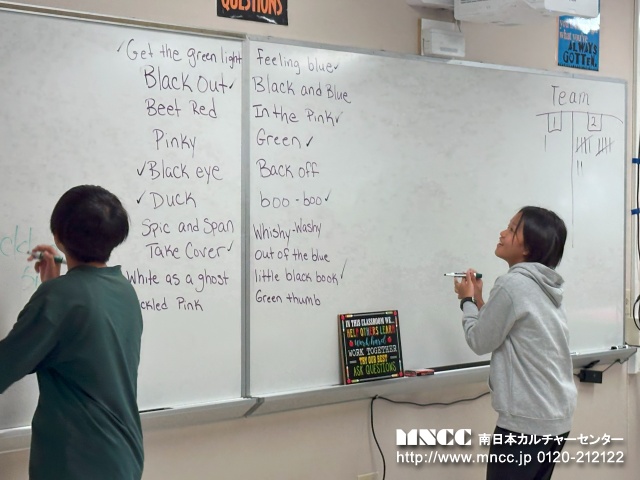 QUESTIONS
ALWAYS
GOTTEN.
✓Get the green light
Black Out✓
Beet Red
Pinky
✓Black eye
✓Duck
Spic and Span
Take Cover✓
White as a ghost
ckled Pink
feeling blue✓
Black and Blue
In the Pink✓
Green✓
Back off
boo-boo✓
Whishy-Washy
Out of the blue
little black book✓
Green thumb
Team
1 2
IN THIS CLASSROOM WE...
HELP OTHERS LEARN
work hard
WORK TOGETHER
TRY OUR BEST
ASK QUESTIONS
MNCC 南日本カルチャーセンター
http://www.mncc.jp 0120-212122